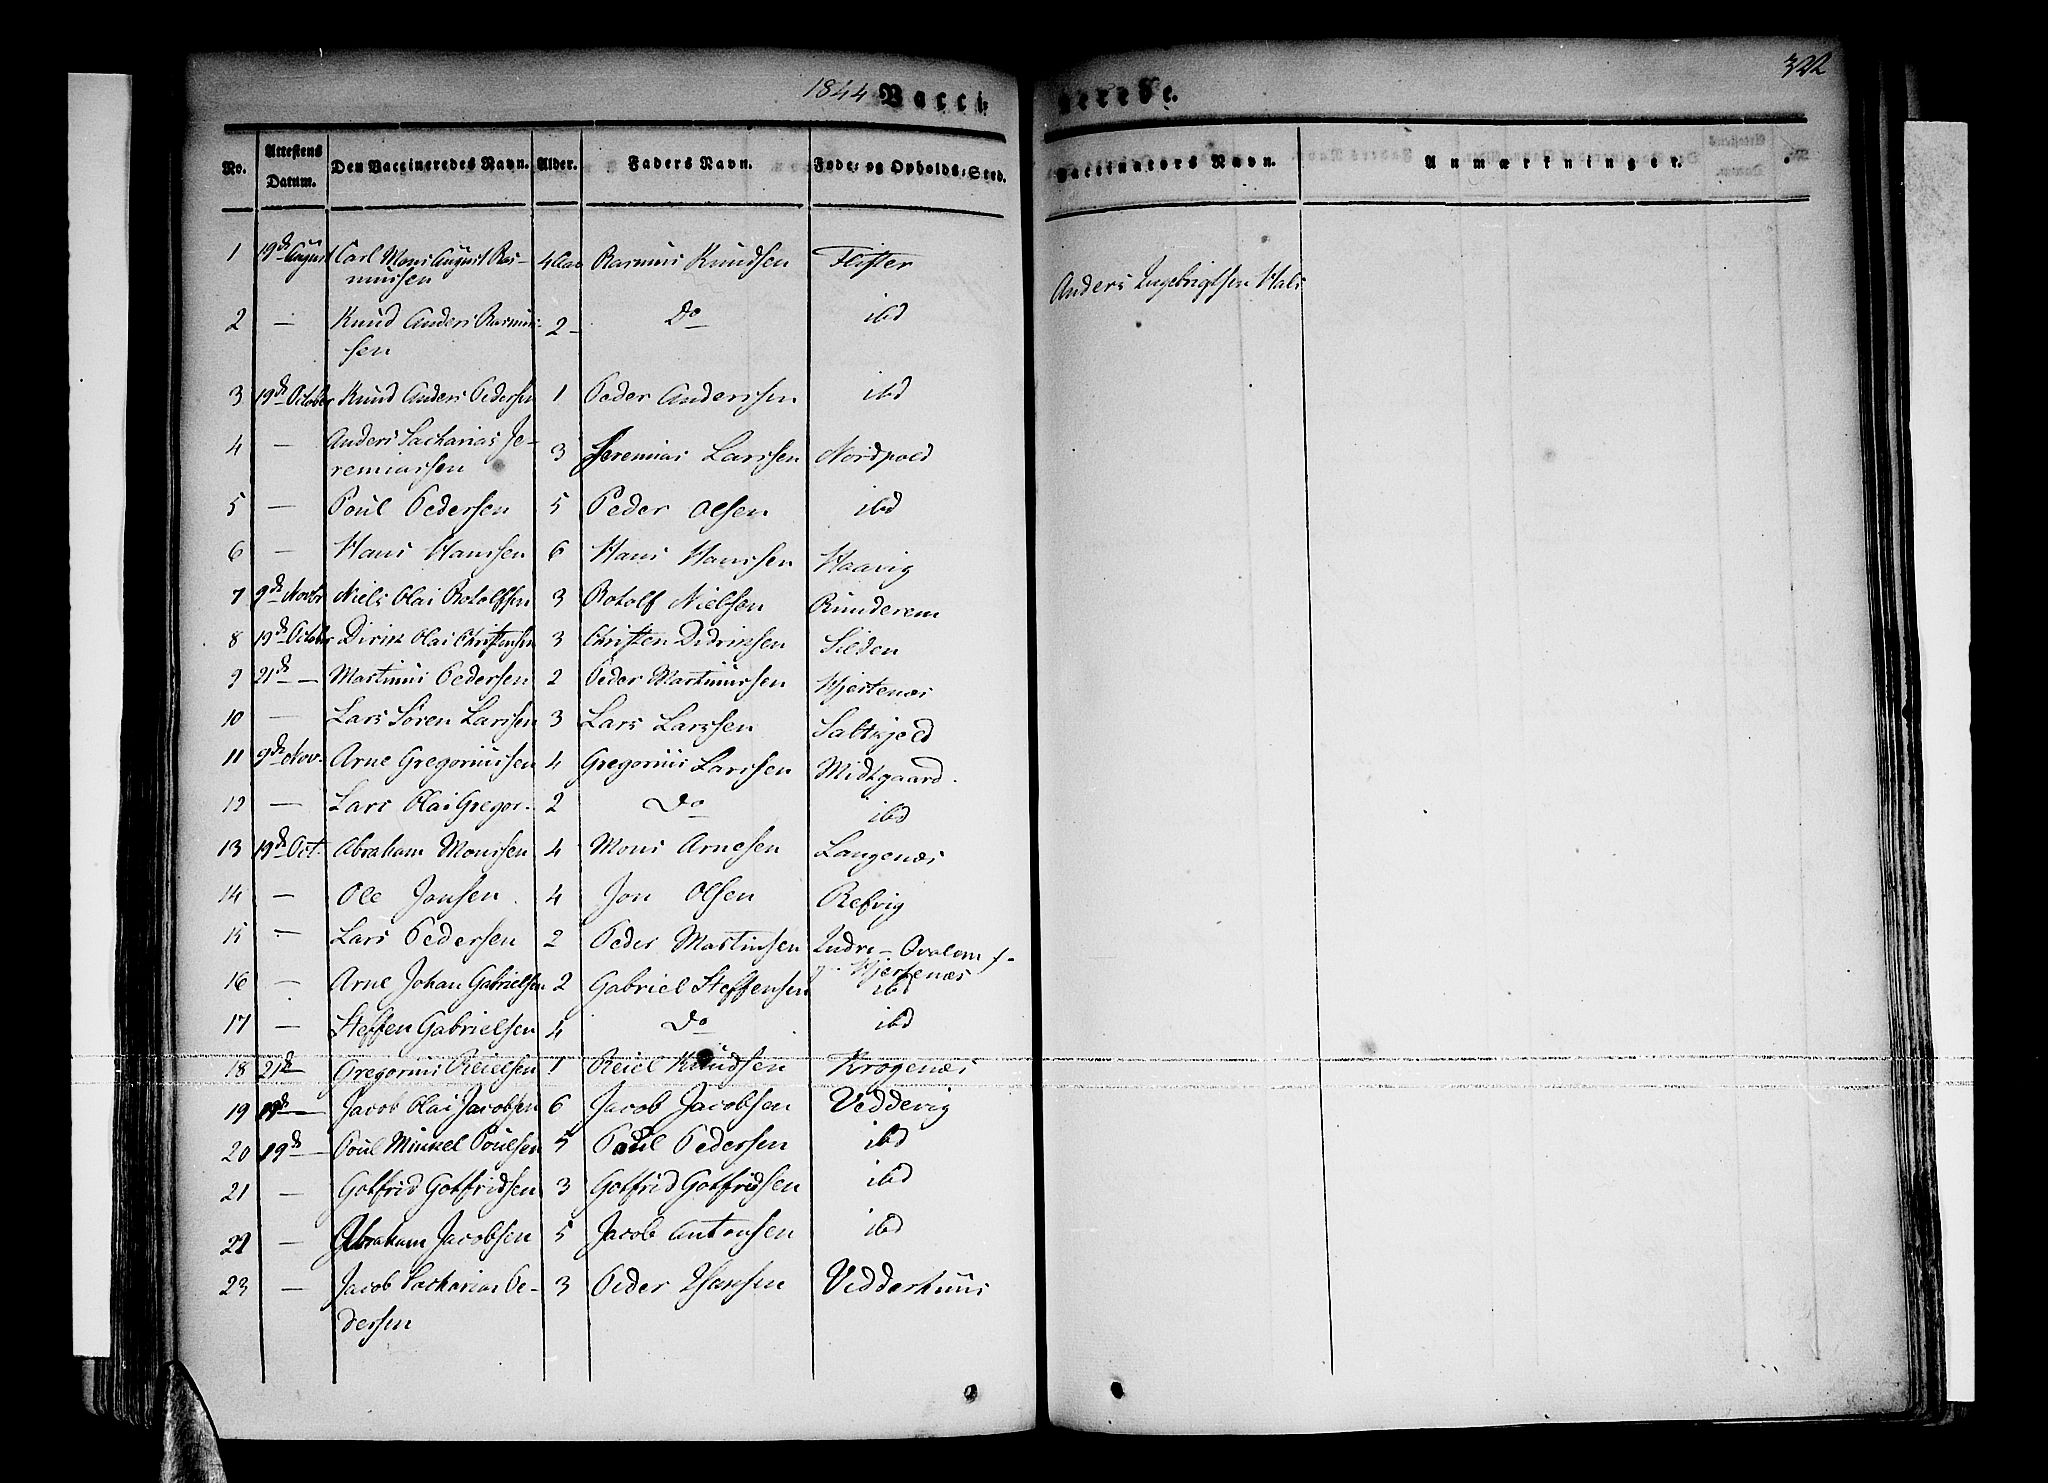 1844 Vacci-
nerede.
322
No. Attestens Datum. Den Vaccineredes Navn. Alder. Faders Navn. Føde- og Opholds-Sted.
Vaccinators Navn. Anmærkninger.
1 19de August Carl Mons August Ras- 4 Aar Rasmus Knudsen Flister
mussen
Anders Ingebrigtsen Hals
2 — Knud Anders Rasmus- 2 - Do ibd
sen
3 19de October Knud Anders Pedersen 1 Peder Anderssen ibd
4 — Anders Sacharias Je- 3 Jeremias Larssen Nordpold
remiassen
5 — Poul Pedersen 5 Peder Olsen ibd
6 — Hans Hanssen 6 Hans Hanssen Haavig
7 9de Novbr Niels Olai Rotolfsen 3 Rotolf Nielsen Runderem
8 19de October Dirik Olai Christensen 3 Christen Didriksen Silden
9 21de — Martinus Pedersen 2 Peder Martinussen Hjertenæs
10 — Lars Søren Larssen 3 Lars Larssen Saltkjeld
11 9de Nov. Arne Gregoriussen 4 Gregorius Larssen Midtgaard.
12 — Lars Olai Gregor. 2 Do ibd
13 19de Oct. Abraham Monssen 4 Mons Arnesen Langenæs
14 — Ole Jonsen. 4 Jon Olsen Refvig
15 — Lars Pedersen 2 Peder Martinsen Indre-
Hjertenæs
16 — Arne Johan Gabrielsen 2 Gabriel Steffensen ibd
17 — Steffen Gabrielsen 4 Do ibd
18 21de — Gregorius Reielsen 1 Reiel Knudsen Krogenæs
19 19de — Jacob Olai Jacobsen 6 Jacob Jacobsen Veddevig
20 19de — Poul Mikkel Poulsen 5 Poul Pedersen ibd
21 — Gotfrid Gotfridsen 3 Gotfrid Gotfridsen ibd
22 — Abraham Jacobsen 5 Jacob Antonsen ibd
23 — Jacob Sacharias Pe- 3 Peder Hansen Vedderhuus
dersen